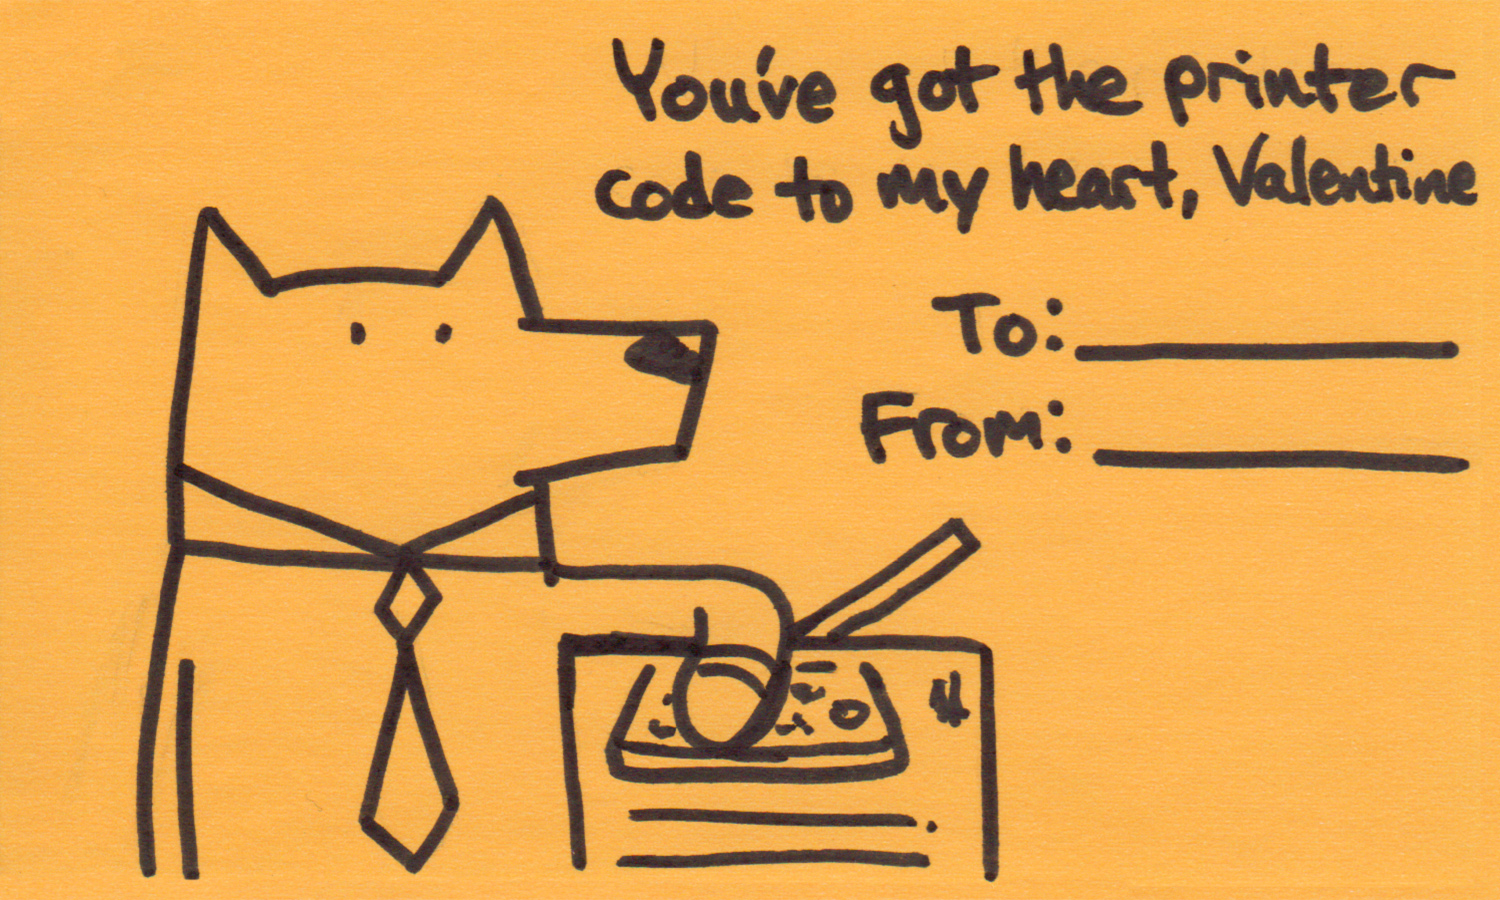 You've got the printer
code to my heart, Valentine
To:
From: